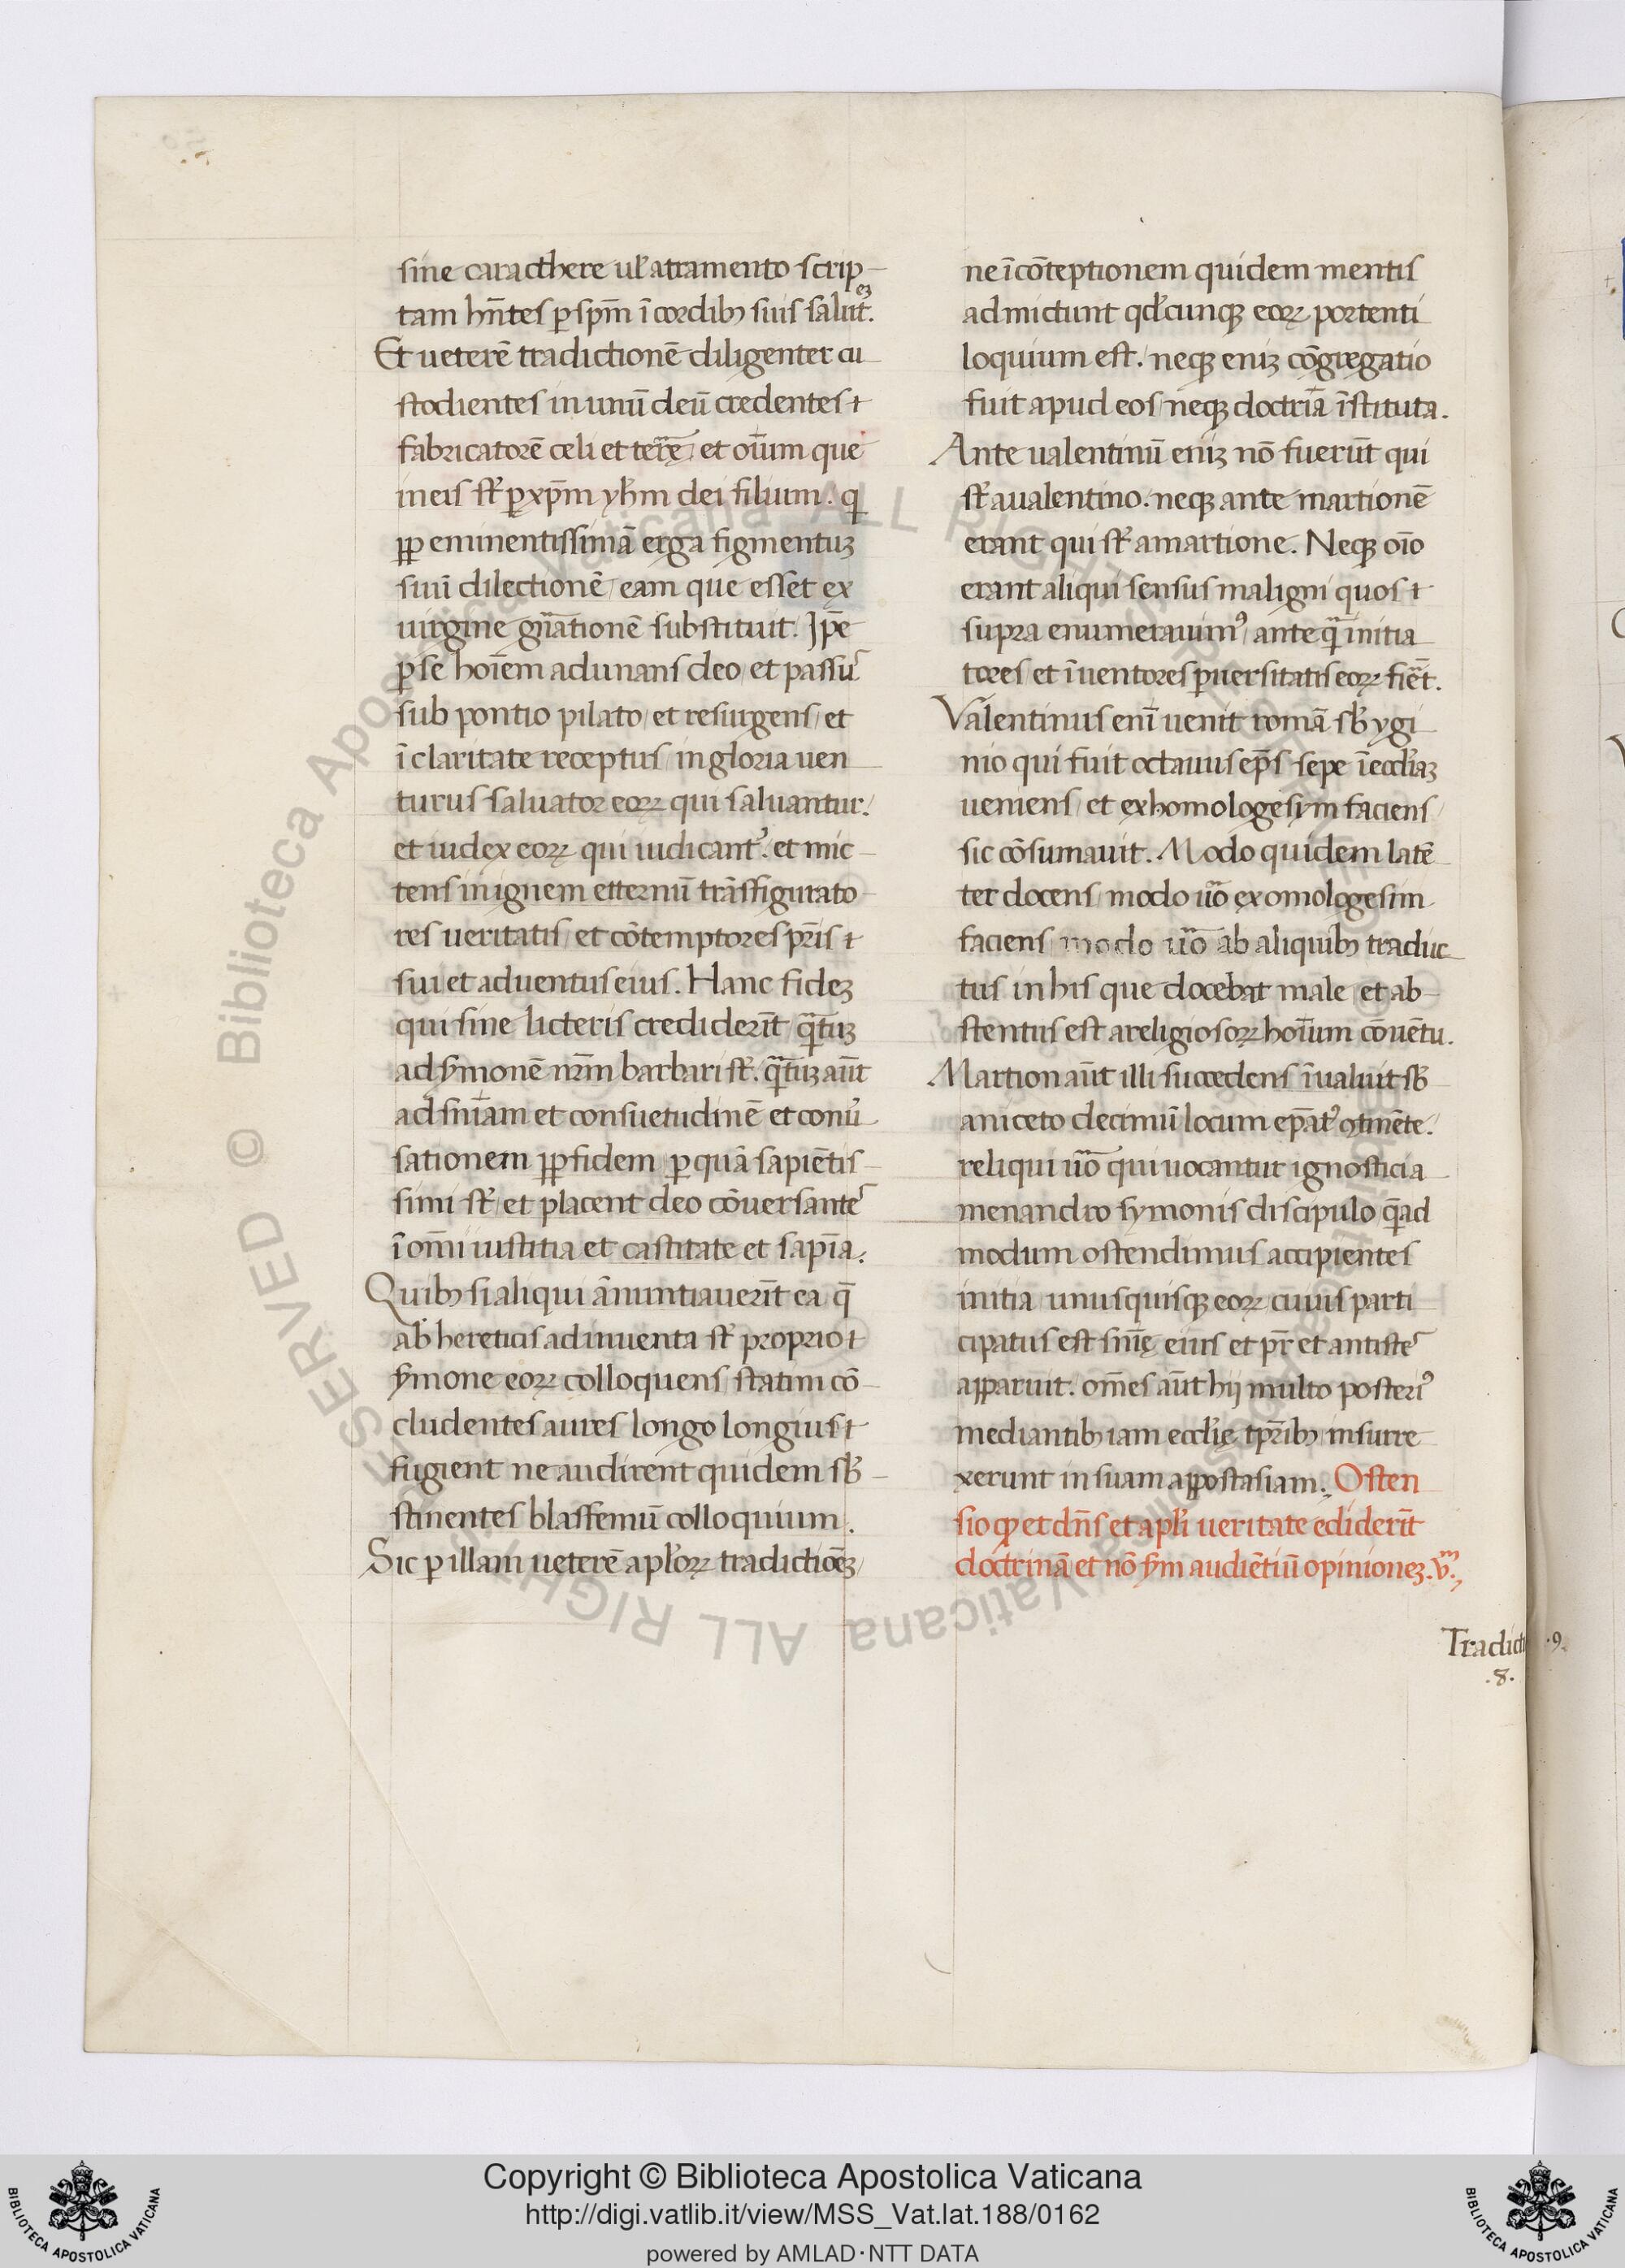 sine caracthere ul̓ atramento scrip
tam hn̄tes ꝑ sp̄m ī cordibꝫ suis salutē.
Et ueterē tradictionē diligenter cu
stodientes in unū deū credentes ⁊
fabricatorē celi et terrę et oīum que
in eis st̓ ꝑ xp̄m yh̄m dei filium. q
ꝓp eminentissimā erga figmentuꝫ
suū dilectionē eam que esset ex
uirgine gn̄ationē substituit. Ip̄e
ꝑ se hoīem adunans deo et passuꝰ
sub pontio pilato et resurgens et
ī claritate receptus in gloria uen
turus saluator eoꝝ qui saluantur.
et iudex eoꝝ qui iudicant᷑. et mic
tens in ignem etternū trāsfigurato
res ueritatis et cōtemptores pr̄is ⁊
sui et aduentus eius. Hanc fideꝫ
qui sine licteris crediderūt q̄tuꝫ
ad s̓monē nr̄m barbari st̓. q̄tuꝫ aūt
ad sn̄iam et consuetudinē et conu̓
sationem ꝓp fidem ꝑ quā sapiētis
simi st̓ et placent deo cōuersanteꝰ
ī omī iustitia et castitate et sapīa.
Quibꝫ si aliqui ānuntiauerīt ea q̄
ab hereticis adinuenta st̓ proprio ⁊
s̓mone eoꝝ colloquens statim cō
cludentes aures longo longius ⁊
fugient ne audirent quidem sb̓
stinentes blassemū colloquium.
Sic ꝑ illam ueterē apl̓oꝝ tradictiōeꝫ
ne ī cōteptionem quidem mentis
admictunt qd̓cunqꝫ eoꝝ portenti
loquium est. neqꝫ eniꝫ cōgregatio
fuit apud eos neqꝫ doctrīa īstituta.
Ante ualentinū eniꝫ nō fuerūt qui
st̓ a ualentino. neqꝫ ante martionē
erant qui st̓ a martione. Neqꝫ oīo
erant aliqui sensus maligni quos ⁊
supra enumerauimꝰ ante q̄ initia
tores et īuentores ꝑuersitatis eoꝝ fiēt.
Valentinus enī uenit romā sb̓ ygi
nio qui fuit octauus ep̄s sepe ī eccl̓iaꝫ
ueniens et exhomologesym faciens
sic cōsumauit. Modo quidem latē
ter docens modo uō exomologesim
faciens modo uō ab aliquibꝫ traduc
tus in his que docebat male et ab
stentus est a religiosoꝝ hoīum cōuētu.
Martion aūt illi succedens īualuit sb̓
aniceto decimū locum ep̄atꝰ ꝯtinēte.
reliqui uō qui uocantur ignostici a
menandro symonis discipulo q̄ad
modum ostendimus accipientes
initia unusquisqꝫ eoꝝ cuius parti
cipatus est sn̄ię eius et pr̄ et antisteꝰ
apparuit. om̄es aūt hij multo posteriꝰ
mediantibꝫ iam eccl̓ię tp̄ribꝫ insurre
xerunt in suam appostasiam. Osten
sio qꝫ et dn̄s et apl̓i ueritate ediderīt
doctrinā et nō s̓m audiētiū opinioneꝫ. vᵐ.
Tradict
.8.
.9.
Copyright © Biblioteca Apostolica Vaticana
http://digi.vatlib.it/view/MSS_Vat.lat.188/0162
powered by AMLAD·NTT DATA